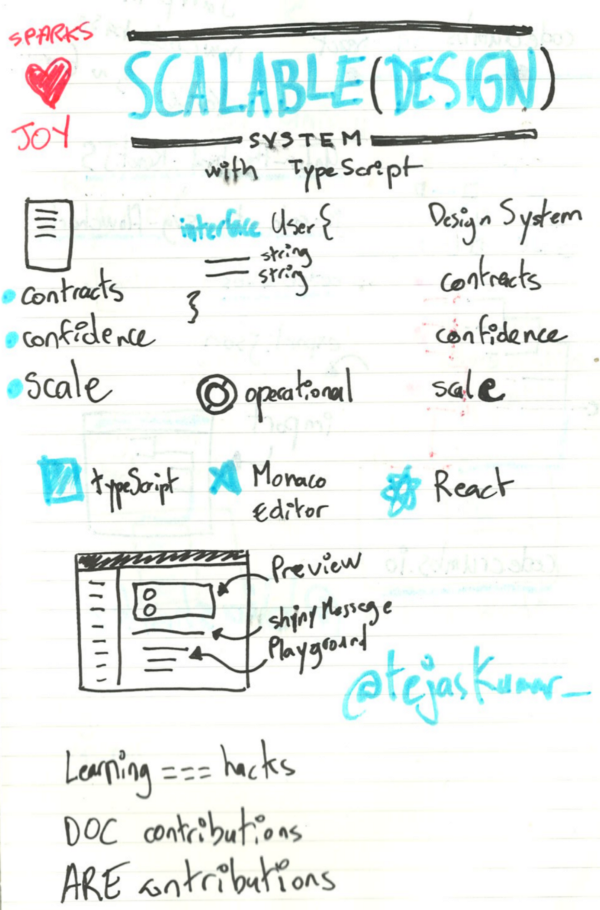 SPARKS
JOY
SCALABLE (DESIGN)
SYSTEM
with TypeScript
contracts
confidence
scale
interface User {
string
string
}
operational
Design System
contracts
confidence
scale
typeScript
Monaco
Editor
React
Preview
shinyMessage
Playground
@tejaskumar_
Learning === hacks
DOC contributions
ARE contributions